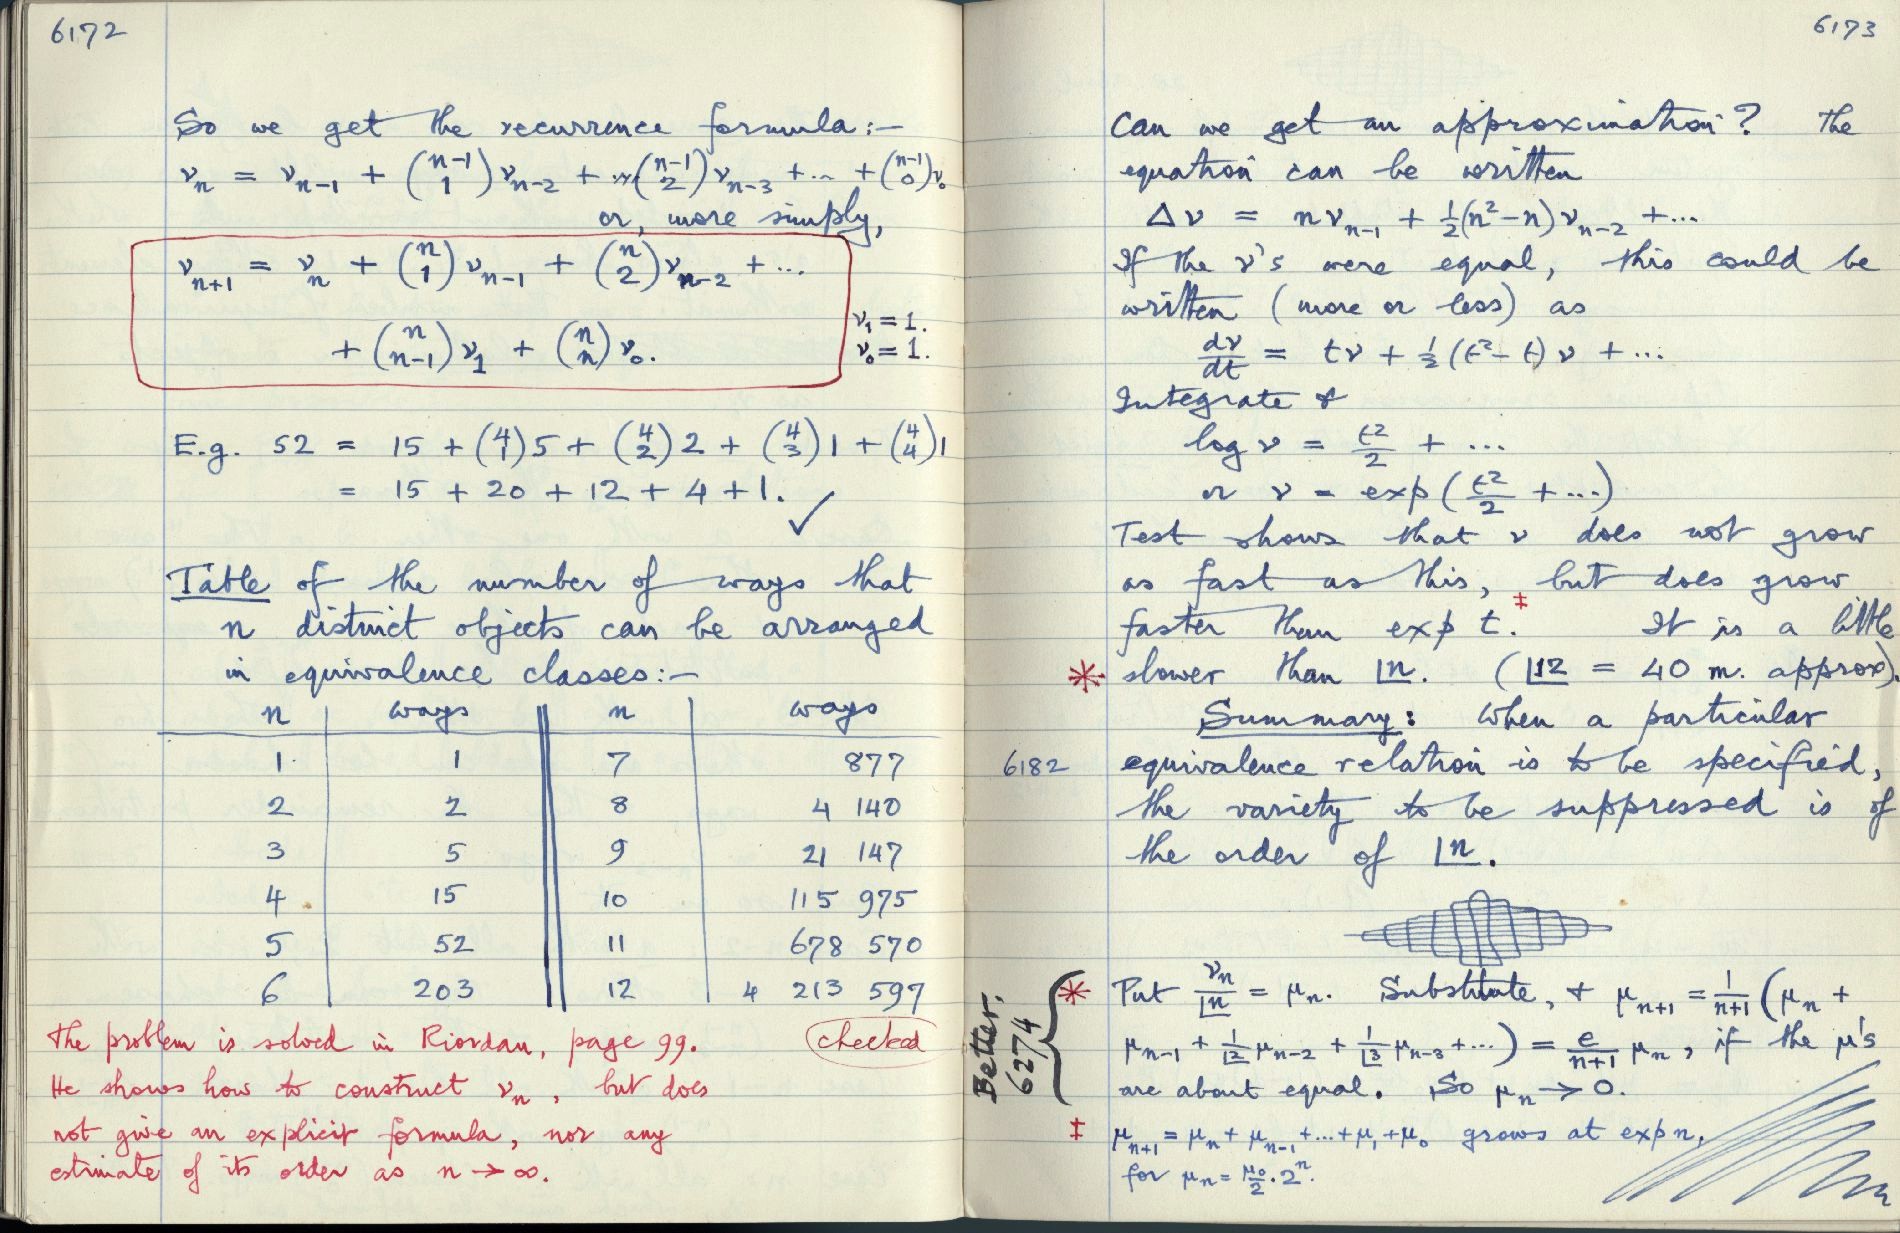 6172
So we get the recurrence formula:-
ν_n = ν_{n-1} + (n-1 1) ν_{n-2} + (n-1 2) ν_{n-3} + ... + (n-1 0) ν_0
or, more simply,
ν_{n+1} = ν_n + (n 1) ν_{n-1} + (n 2) ν_{n-2} + ...
+ (n n-1) ν_1 + (n n) ν_0.
ν_1 = 1.
ν_0 = 1.
E.g. 52 = 15 + (4 1) 5 + (4 2) 2 + (4 3) 1 + (4 4) 1
= 15 + 20 + 12 + 4 + 1. ✓
Table of the number of ways that
n distinct objects can be arranged
in equivalence classes:-
n ways n ways
1 1 7 877
2 2 8 4 140
3 5 9 21 147
4 15 10 115 975
5 52 11 678 570
6 203 12 4 213 597
The problem is solved in Riordan, page 99. checked
He shows how to construct ν_n, but does
not give an explicit formula, nor any
estimate of its order as n → ∞.
6173
Can we get an approximation? The
equation can be written
Δν = nν_{n-1} + ½(n²-n)ν_{n-2} + ...
If the ν's were equal, this could be
written (more or less) as
dν/dt = tν + ½(t²-t)ν + ...
Integrate &
log ν = t²/2 + ...
or ν = exp(t²/2 + ...)
Test shows that ν does not grow
as fast as this, but does grow
faster than exp t.‡ It is a little
* slower than |n. (|12 = 40 m. approx).
Summary: When a particular
6182 equivalence relation is to be specified,
the variety to be suppressed is of
the order of |n.
Better, 6274
* Put ν_n/|n = μ_n. Substitute, & μ_{n+1} = 1/(n+1) (μ_n +
μ_{n-1} + 1/|2 μ_{n-2} + 1/|3 μ_{n-3} + ...) = e/(n+1) μ_n, if the μ's
are about equal. So μ_n → 0.
‡ μ_{n+1} = μ_n + μ_{n-1} + ... + μ_1 + μ_0 grows at exp n,
for μ_n = μ_0/2 . 2^n.